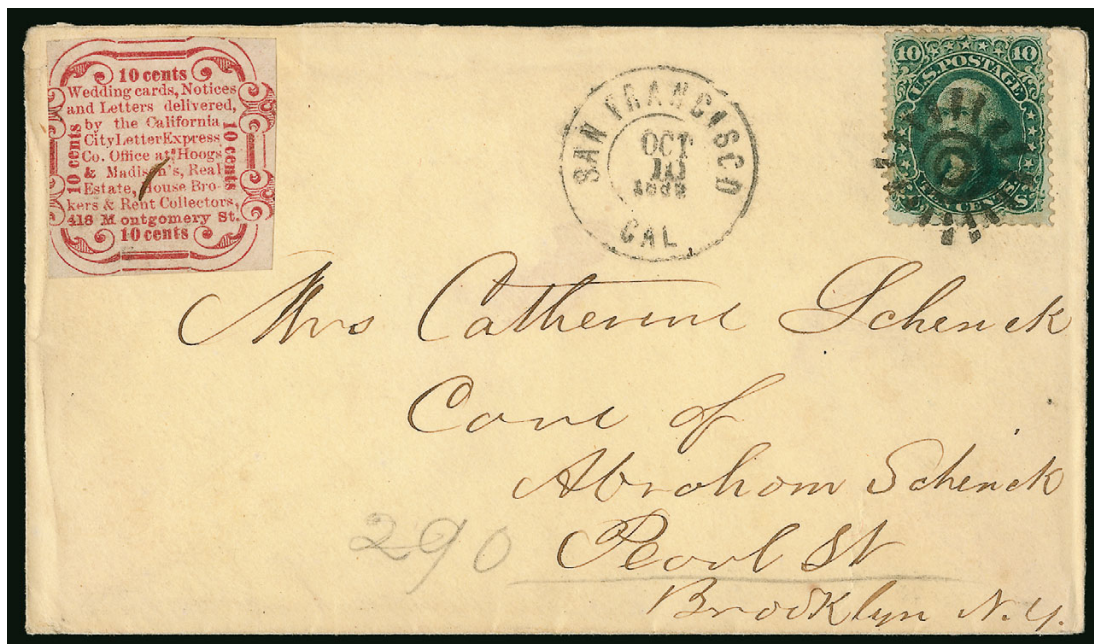 10 cents
Wedding cards, Notices
and Letters delivered,
by the California
City Letter Express
Co. Office at Hoogs
& Madison's, Real
Estate, House Bro-
kers & Rent Collectors,
418 Montgomery St.
10 cents
10 cents
10 cents
SAN FRANCISCO
OCT
10
CAL
10 10
U.S. POSTAGE
CENTS
Mrs Catherine Schenck
Care of
Abraham Schenck
290 Pearl St
Brooklyn N.Y.